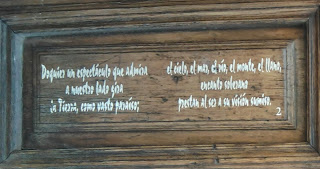 Doquier un espectáculo que admira
a nuestro lado gira
la Tierra, como vasto paraíso;
el cielo, el mar, el río, el monte, el llano,
encanto soberano
prestan al ser a su visión sumiso.
2